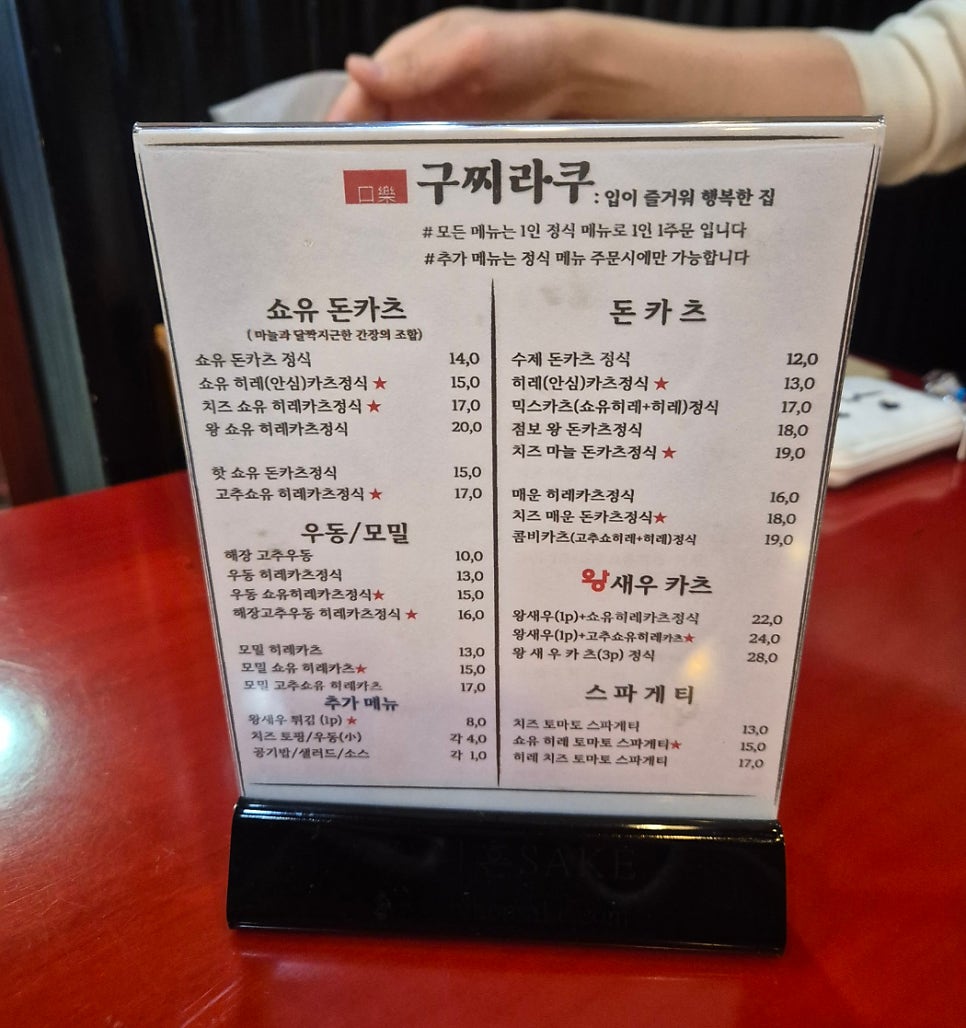 口樂 구찌라쿠 : 입이 즐거워 행복한 집
# 모든 메뉴는 1인 정식 메뉴로 1인 1주문 입니다
# 추가 메뉴는 정식 메뉴 주문시에만 가능합니다
쇼유 돈카츠
( 마늘과 달짝지근한 간장의 조합)
쇼유 돈카츠 정식 14,0
쇼유 히레(안심)카츠정식 ★ 15,0
치즈 쇼유 히레카츠정식 ★ 17,0
왕 쇼유 히레카츠정식 20,0
핫 쇼유 돈카츠정식 15,0
고추쇼유 히레카츠정식 ★ 17,0
우동/모밀
해장 고추우동 10,0
우동 히레카츠정식 13,0
우동 쇼유히레카츠정식★ 15,0
해장고추우동 히레카츠정식 ★ 16,0
모밀 히레카츠 13,0
모밀 쇼유 히레카츠★ 15,0
모밀 고추쇼유 히레카츠 17,0
추가 메뉴
왕새우 튀김 (1p) ★ 8,0
치즈 토핑/우동(小) 각 4,0
공기밥/샐러드/소스 각 1,0
돈 카 츠
수제 돈카츠 정식 12,0
히레(안심)카츠정식 ★ 13,0
믹스카츠(쇼유히레+히레)정식 17,0
점보 왕 돈카츠정식 18,0
치즈 마늘 돈카츠정식 ★ 19,0
매운 히레카츠정식 16,0
치즈 매운 돈카츠정식★ 18,0
콤비카츠(고추쇼히레+히레)정식 19,0
왕새우 카츠
왕새우(1p)+쇼유히레카츠정식 22,0
왕새우(1p)+고추쇼유히레카츠★ 24,0
왕 새 우 카 츠(3p) 정식 28,0
스 파 게 티
치즈 토마토 스파게티 13,0
쇼유 히레 토마토 스파게티★ 15,0
히레 치즈 토마토 스파게티 17,0
SAKE